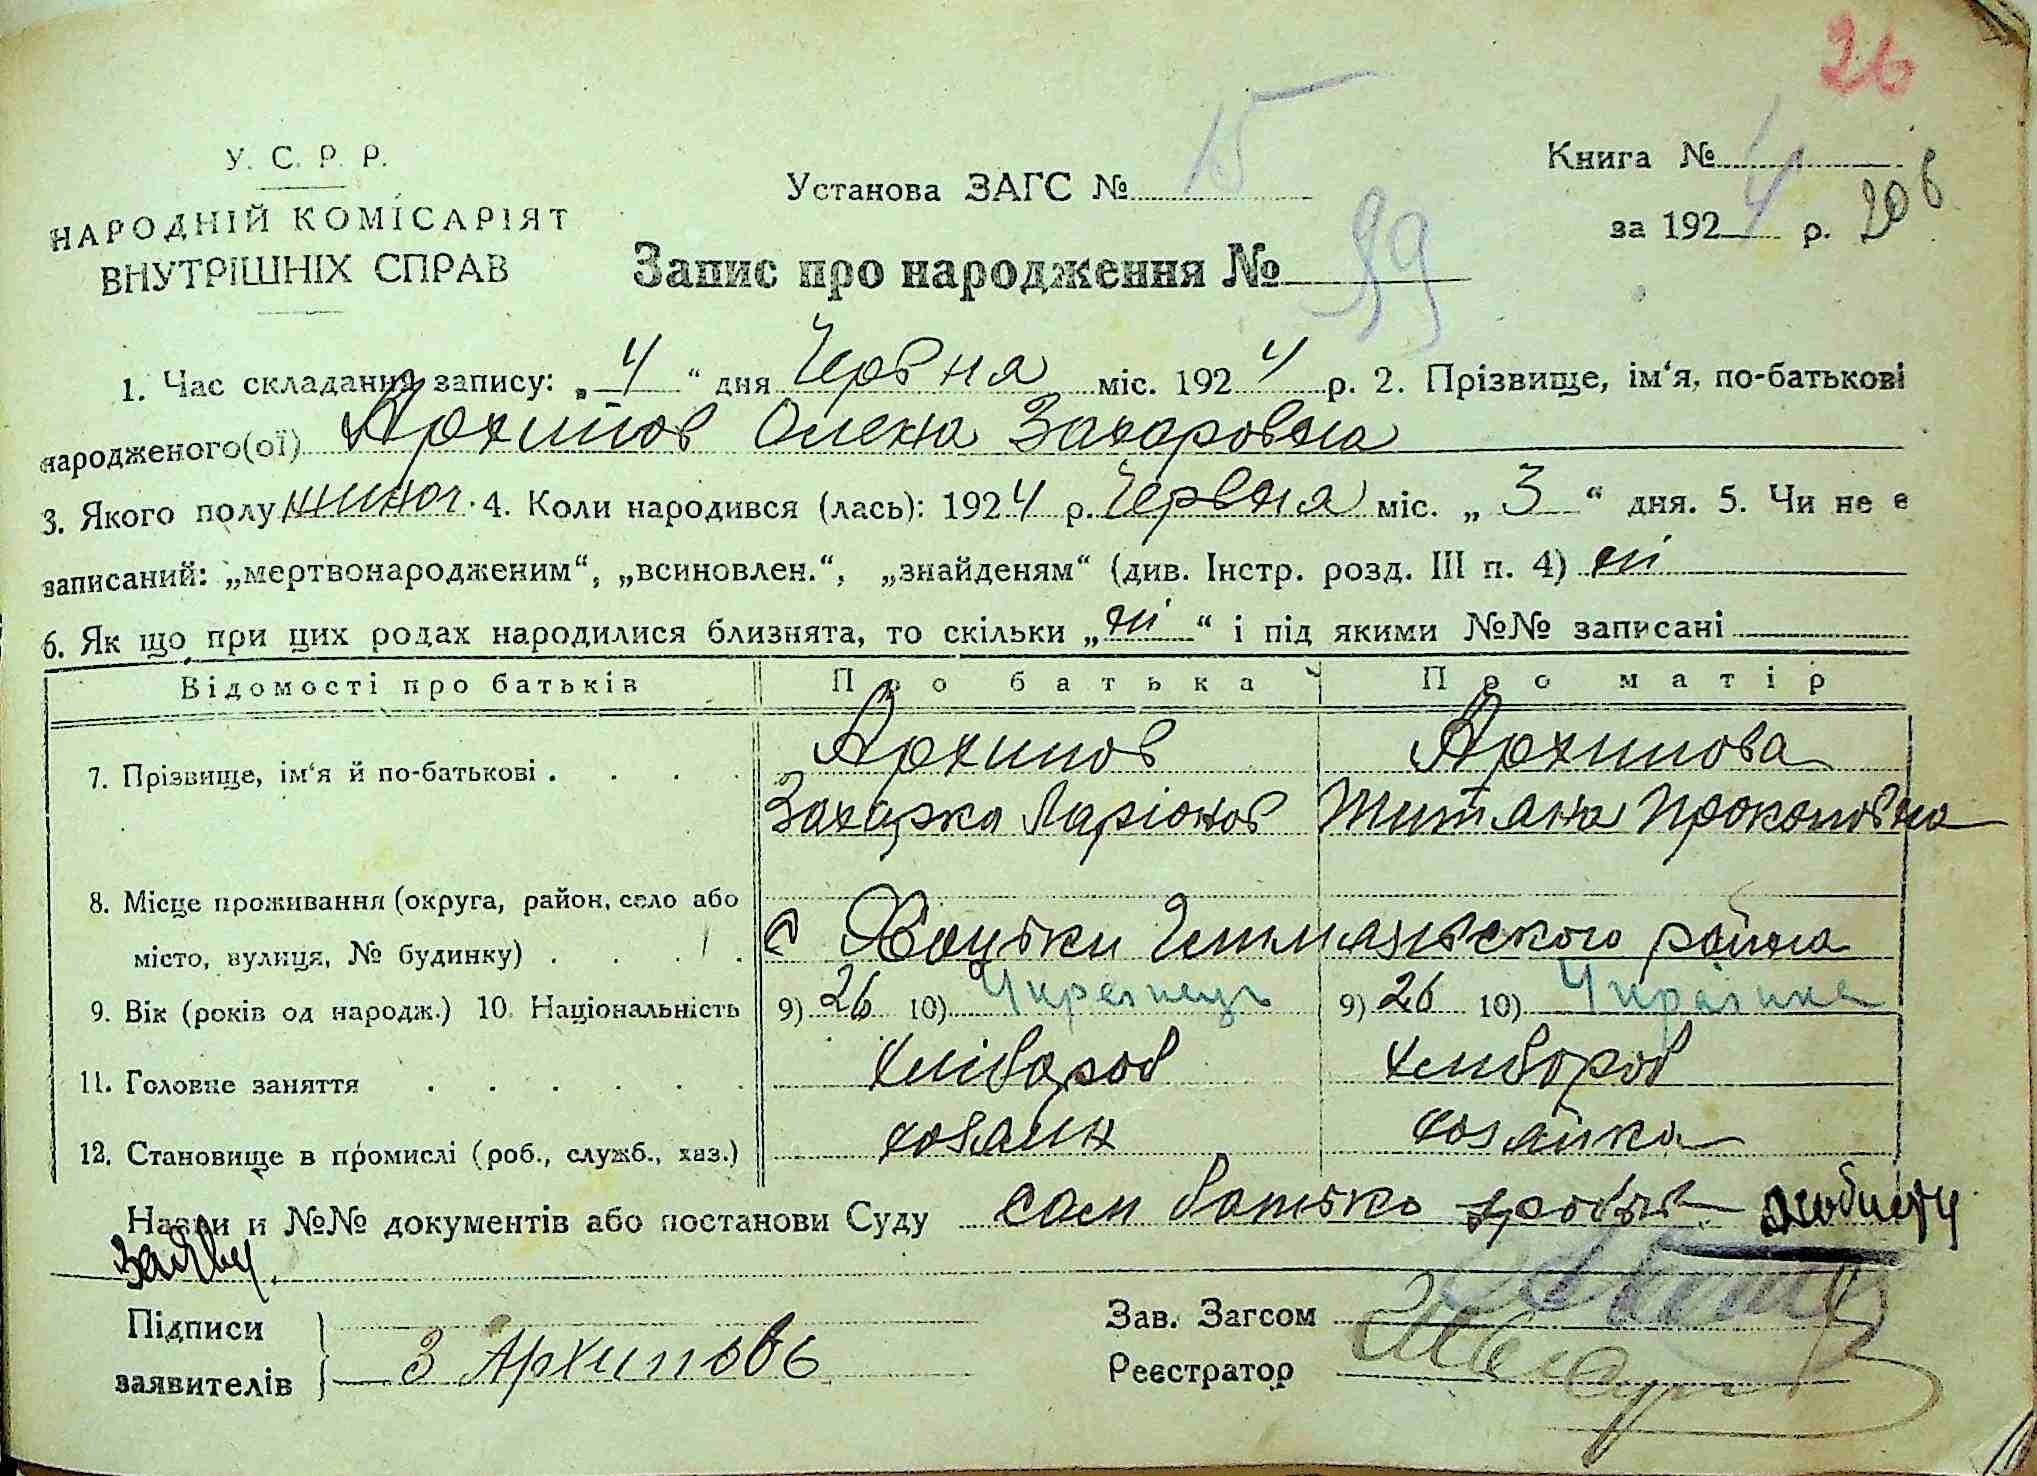 26
У. С. Р. Р.
НАРОДНІЙ КОМІСАРІЯТ
ВНУТРІШНІХ СПРАВ
Установа ЗАГС № 15
Книга №
за 1924 р. 206
Запис про народження № 99
1. Час складання запису: „4“ дня Червня міс. 1924 р. 2. Прізвище, ім‘я, по-батькові
народженого(ої) Архипов Олена Захаровна
3. Якого полу жиноч. 4. Коли народився (лась): 1924 р. Червня міс. „3“ дня. 5. Чи не є
записаний: „мертвонародженим“, „всиновлен.“, „знайденям“ (див. Інстр. розд. III п. 4) ні
6. Як що при цих родах народилися близнята, то скільки „ні“ і під якими №№ записані
Відомості про батьків Про батька Про матір
7. Прізвище, ім‘я й по-батькові . . . . Архипов Архипова
Захарка Ларіонов Титяна Прокоповна
8. Місце проживання (округа, район, село або
місто, вулиця, № будинку) . . . . с Хоцьки Гельмязьского района
9. Вік (років од народж.) 10. Національність 9) 26 10) Українець 9) 26 10) Українка
11. Головне заняття . . . . . . хліборов хлиборов
12. Становище в промислі (роб., служб., хаз.) хозаин хозайка
Назви и №№ документів або постанови Суду сам батько зробив особисту
заяву.
Підписи
заявителів З Архиповъ
Зав. Загсом
Реєстратор